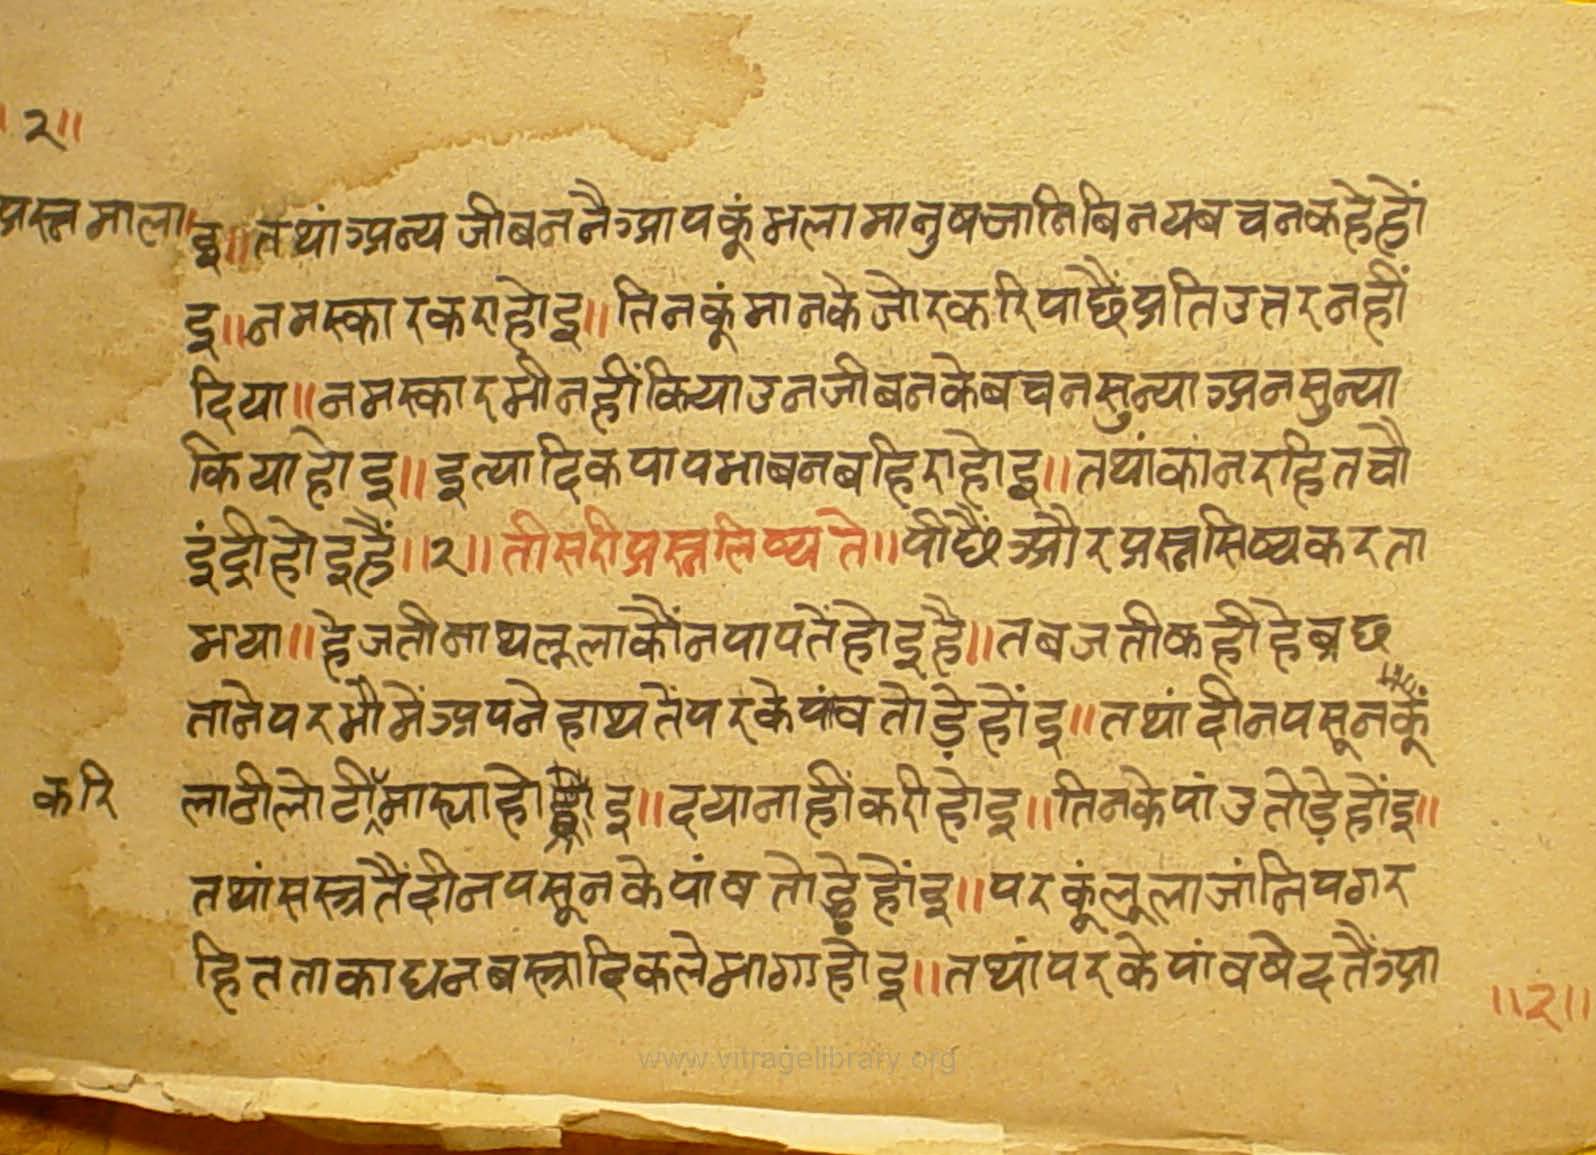 ॥२॥
प्रस्नमाला
इ॥तथांअन्यजीबननैआपकूंभलामानुषजानिबिनयबचनकहेहों
इ॥नमस्कारकराहोइ॥तिनकूंमानकेजोरकरिपाछैंप्रतिउत्तरनहीं
दिया॥नमस्कारभीनहींकियाउनजीबनकेबचनसुन्याअनसुन्या
कियाहोइ॥इत्यादिकपापभाबनबहिराहोइ॥तथांकांनरहितचौ
इंद्रीहोइहैं॥२॥तीसरीप्रस्नलिष्यते॥पीछैंऔरप्रस्नसिष्यकरता
भया॥हेजतीनाथलूलाकौंनपापतेंहोइहै॥तबजतीकहीहेब्रछ
तानेपरभौमेंअपनेहाथतेंपरकेपांवतोड़ेहोंइ॥तथांदीनपसूनकूं
करि लाठीलोटीमाऱ्याहोइ॥दयानाहींकरीहोइ॥तिनकेपांउतोड़ेहोंइ॥
तथांसस्त्रतैंदीनपसूनकेपांवतोड़ेहोंइ॥परकूंलूलाजांनिपगर
हितताकाधनबस्त्रादिकलेभागाहोइ॥तथांपरकेपांवषेदतैंआ
॥२॥
www.vitragelibrary.org